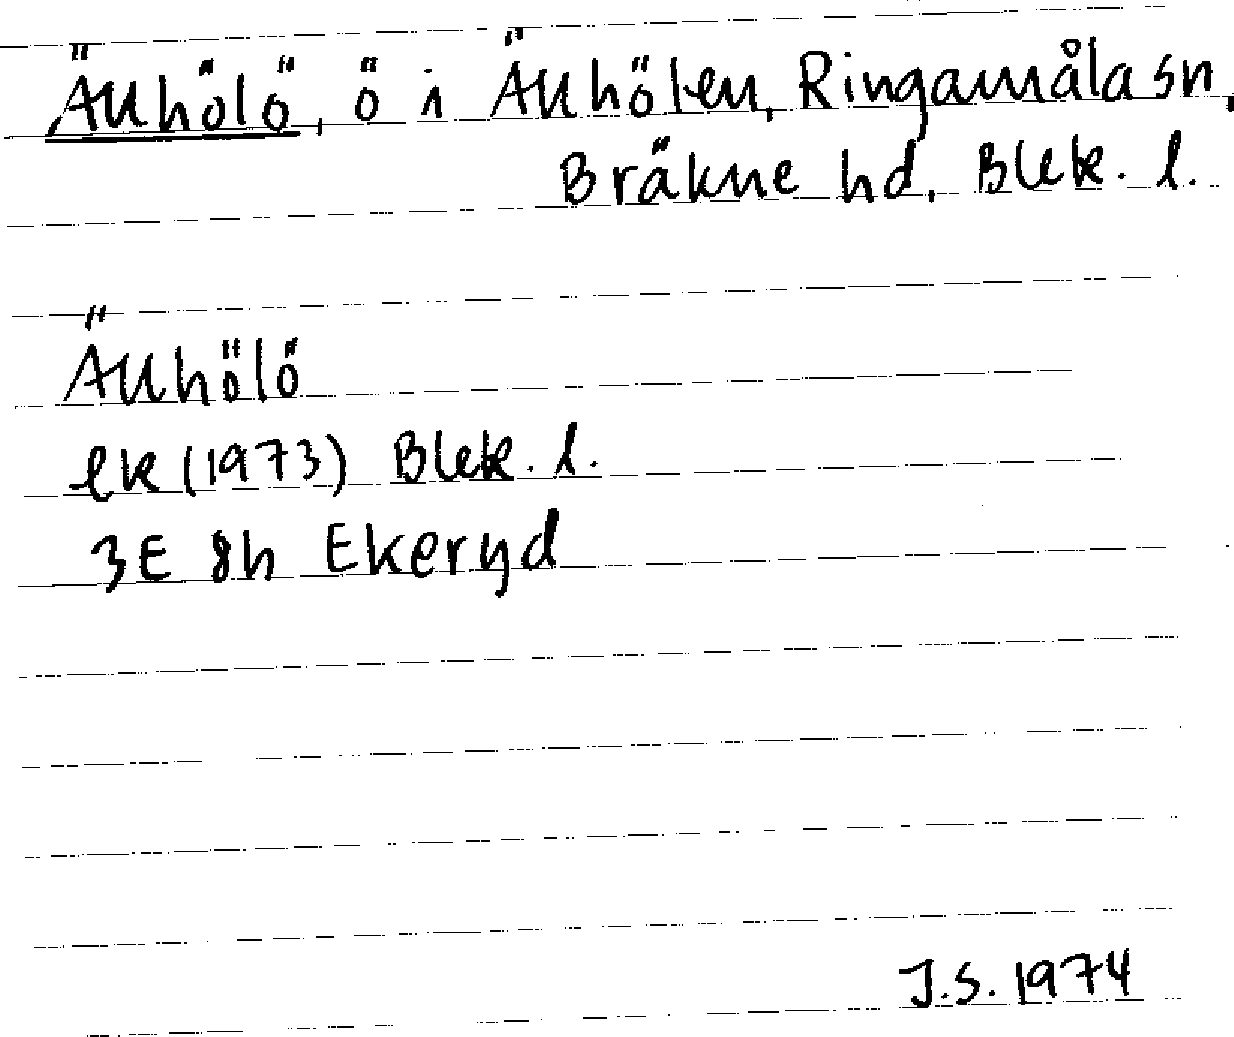 Ällhölö, ö i Ällhölen, Ringamåla sn,
Bräkne hd, Blek. l.
Ällhölö
ek (1973) Blek. l.
3E 8h Ekeryd
J.S. 1974